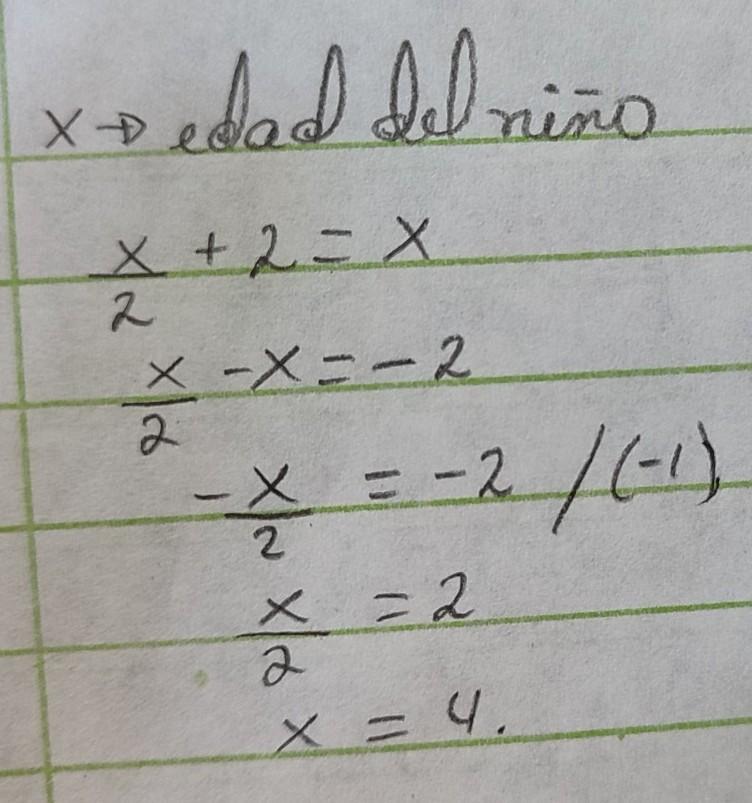 x → edad del niño
x/2 + 2 = x
x/2 - x = - 2
- x/2 = -2 /(-1)
x/2 = 2
x = 4.